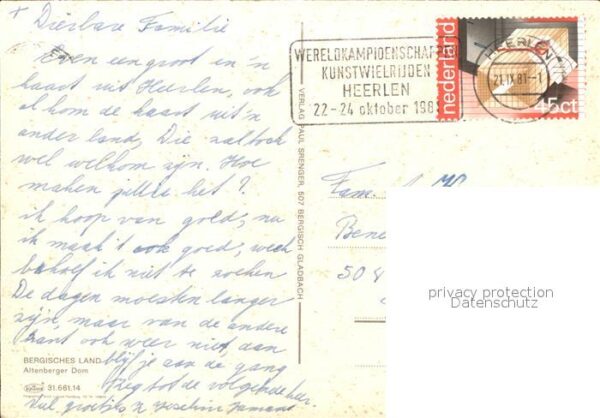 + Dierbare Familie
Even een groet en 'n
kaart uit Heerlen, ook
al kom de kaart uit 'n
ander land, Die zal toch
wel welkom zijn. Hoe
maken jullie het?
ik hoop van goed, nu
ik maak't ook goed, werk
behoef ik niet te zoeken
De dagen moesten langer
zijn, maar van de andere
kant ook weer niet, dan
blijf je aan de gang
Zeg tot de volgende keer.
BERGISCHES LAND
Altenberger Dom
31.661.14
VERLAG PAUL SPRENGER, 507 BERGISCH GLADBACH
WERELDKAMPIOENSCHAPPEN
KUNSTWIELRIJDEN
HEERLEN
22-24 oktober 198
nederland
HEERLEN
21.IX.81.-1
45ct
Fam.
Bene
50
privacy protection
Datenschutz